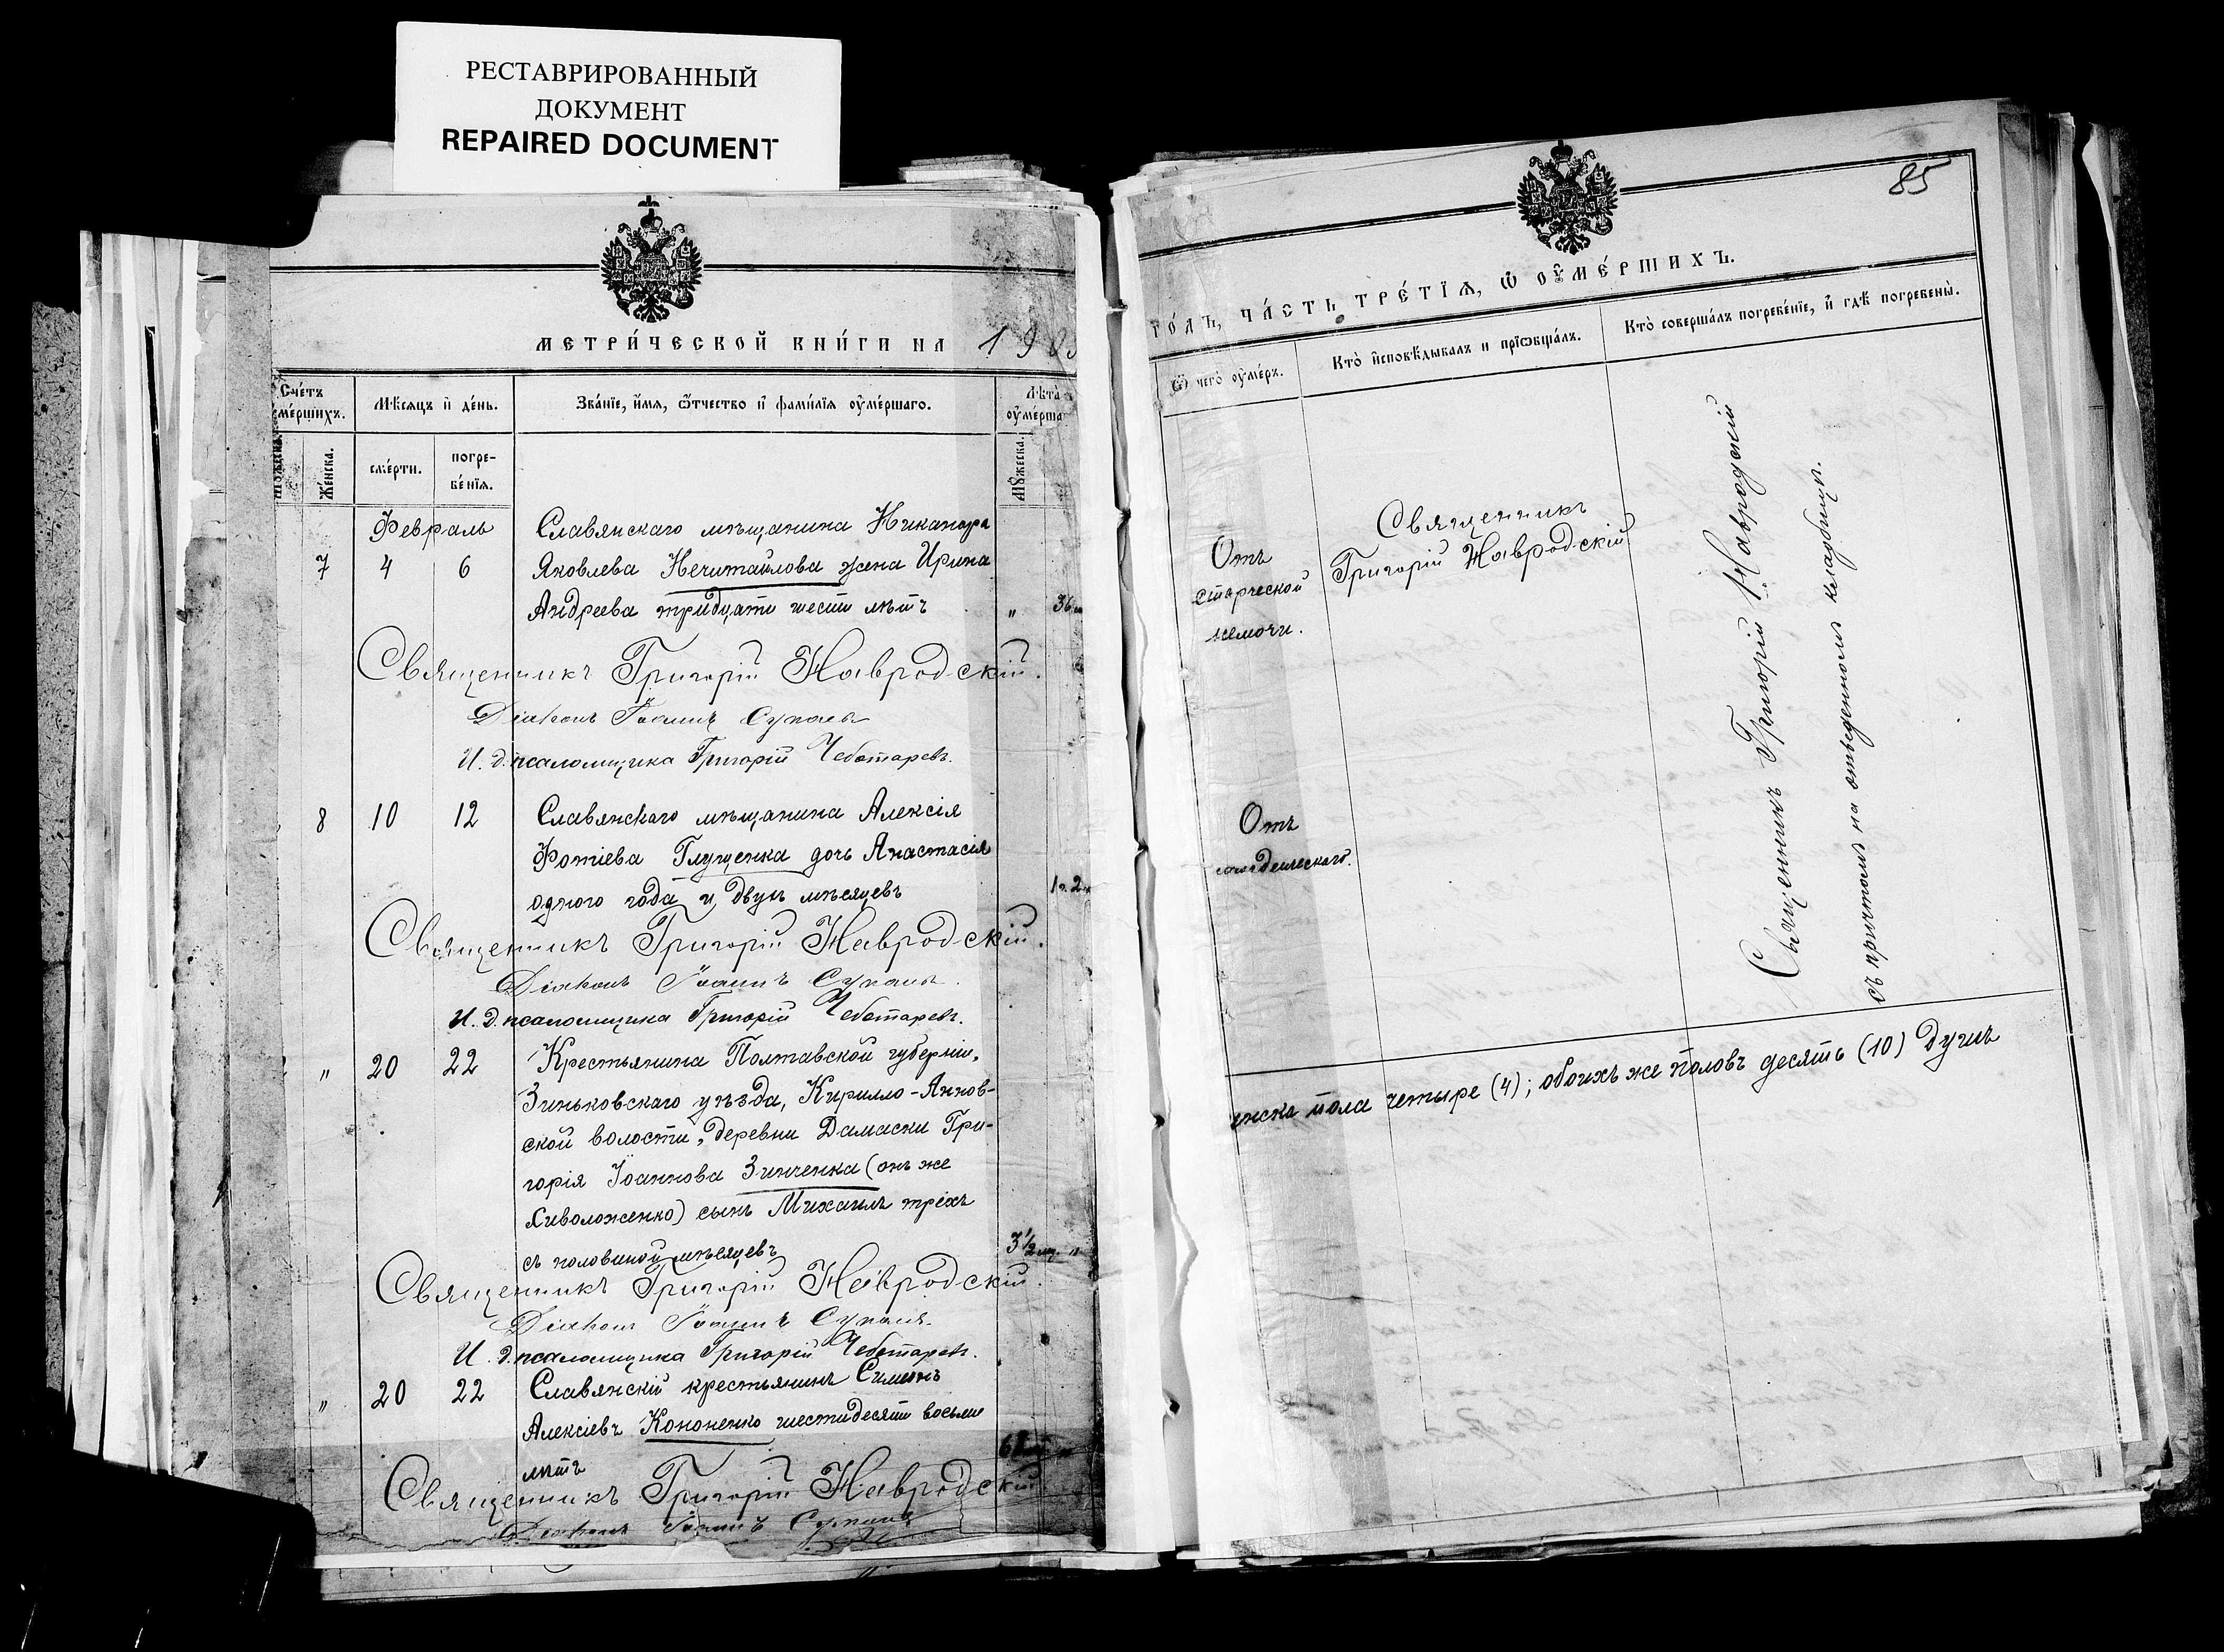 РЕСТАВРИРОВАННЫЙ
ДОКУМЕНТ
REPAIRED DOCUMENT
МЕТРИ́ЧЕСКОЙ КНИ́ГИ НА 190
Сче́тъ
ме́ршихъ.
Мѣ́сяцъ и҆ де́нь.
Зва́нїе, и҆́мя, ѻ҆́тчество и҆ фами́лїя оу҆ме́ршаго.
Лѣ́та
оу҆ме́рша
Же́нска.
сме́рти.
погре-
бе́нїя.
Мꙋ́жеска.
Февраль
Славянскаго мѣщанина Никанора
7 4 6 Яковлева Нечитайлова жена Ирина
Андреева тридцати шести лѣтъ " 36
Священникъ Григорій Навродскій.
Діаконъ Іоаннъ
И. д. псаломщика Григорій Чеботаревъ.
8 10 12 Славянскаго мѣщанина Алексія
Фотіева Глущенка дочь Анастасія
одного года и двухъ мѣсяцевъ 1 г. 2
Священникъ Григорій Навродскій.
Діаконъ Іоаннъ
И. д. псаломщика Григорій Чеботаревъ.
" 20 22 Крестьянина Полтавской губерніи,
Зиньковскаго уѣзда, Кирилло-Аннов-
ской волости, деревни Дамаски Гри-
горія Іоаннова Зинченка (онъ же
) сынъ Михаилъ трехъ
съ половиной мѣсяцевъ 3 1/2 м. "
Священникъ Григорій Навродскій.
Діаконъ Іоаннъ
И. д. псаломщика Григорій Чеботаревъ.
" 20 22 Славянскій крестьянинъ Симеонъ
Алексіевъ Кононенко шестидесяти восьми
лѣтъ 68
Священникъ Григорій Навродскій.
Діаконъ Іоаннъ
85
ГО́ДЪ, ЧА́СТЬ ТРЕ́ТЇѦ, Ѡ҆ ОУ҆МЕ́РШИХЪ.
Ѿ чегѡ̀ оу҆́меръ.
Кто̀ и҆сповѣ́дывалъ и прїѡбща́лъ.
Кто̀ соверша́лъ погребе́нїе, и҆ гдѣ̀ погребены̀.
Отъ
старческой
немочи.
Священникъ
Григорій Навродскій
Отъ
младенческаго.
Священникъ Григорій Навродскій
съ причтомъ на отведенномъ кладбищѣ.
енска пола четыре (4); обоихъ же половъ десять (10) душъ